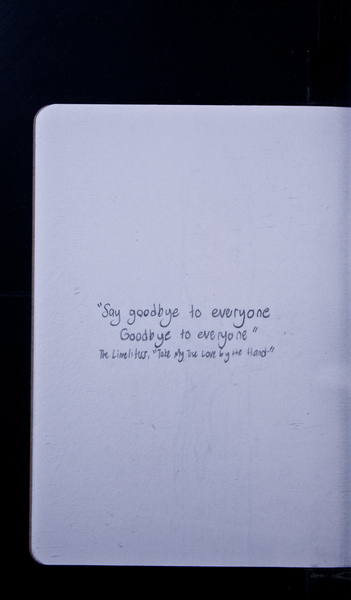 "Say goodbye to everyone
Goodbye to everyone"
The Limelites, "Take My True Love by the Hand"